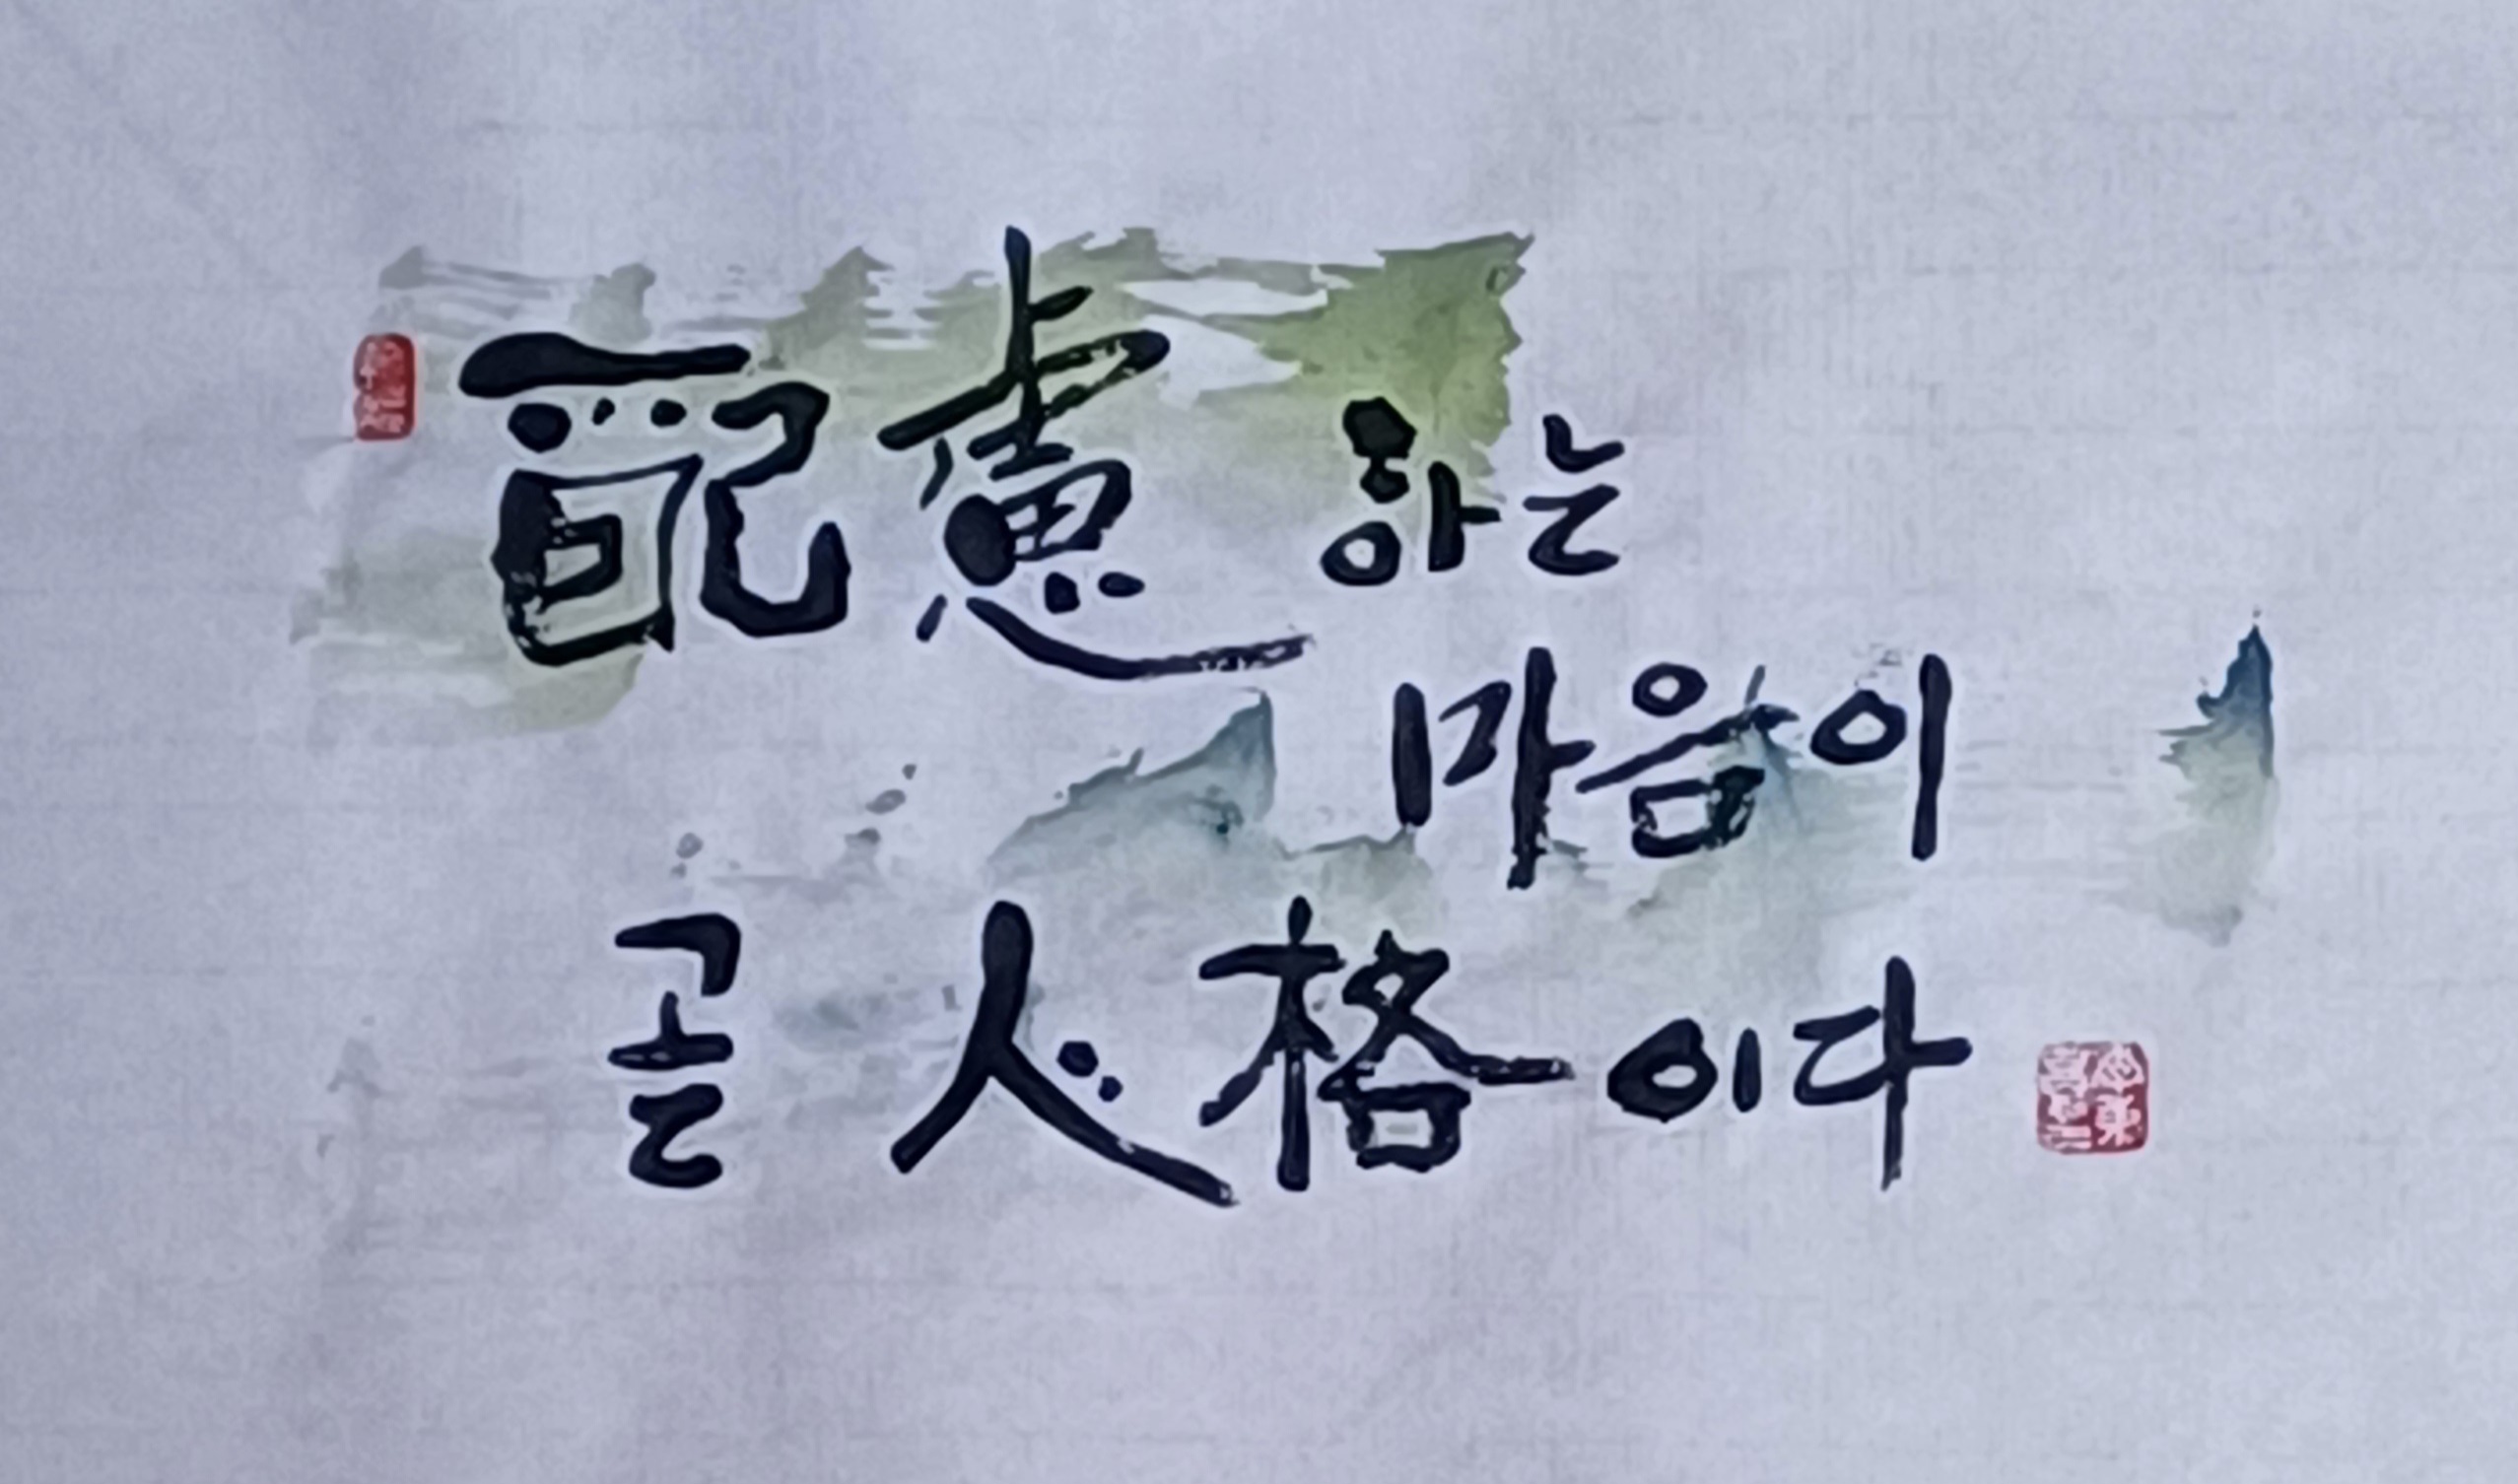 配慮하는
마음이
곧 人格이다